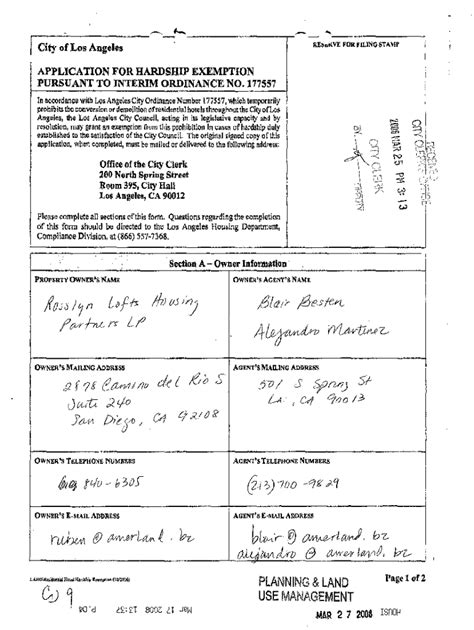 City of Los Angeles
APPLICATION FOR HARDSHIP EXEMPTION
PURSUANT TO INTERIM ORDINANCE NO. 177557
In accordance with Los Angeles City Ordinance Number 177557, which temporarily
prohibits the conversion or demolition of residential hotels throughout the City of Los
Angeles, the Los Angeles City Council, acting in its legislative capacity and by
resolution, may grant an exemption from this prohibition in cases of hardship duly
established to the satisfaction of the City Council. The original signed copy of this
application, when completed, must be mailed or delivered to the following address:
Office of the City Clerk
200 North Spring Street
Room 395, City Hall
Los Angeles, CA 90012
Please complete all sections of this form. Questions regarding the completion
of this form should be directed to the Los Angeles Housing Department,
Compliance Division, at (866) 557-7368.
RESERVE FOR FILING STAMP
CITY CLERK'S OFFICE
2008 MAR 25 PM 3:13
CITY CLERK
BY
DEPUTY
Section A – Owner Information
PROPERTY OWNER'S NAME
Rosslyn Lofts Housing
Partners LP
OWNER'S AGENT'S NAME
Blair Besten
Alejandro Martinez
OWNER'S MAILING ADDRESS
2878 Camino del Rio S
Suite 240
San Diego, CA 92108
AGENT'S MAILING ADDRESS
501 S Spring St
LA, CA 90013
OWNER'S TELEPHONE NUMBERS
840-6305
AGENT'S TELEPHONE NUMBERS
(213) 700-9829
OWNER'S E-MAIL ADDRESS
ruben @ amerland.bz
AGENT'S E-MAIL ADDRESS
blair @ amerland.bz
alejandro @ amerland.bz
Page 1 of 2
PLANNING & LAND
USE MANAGEMENT
MAR 27 2008
P.04
Mar 17 2008 13:37